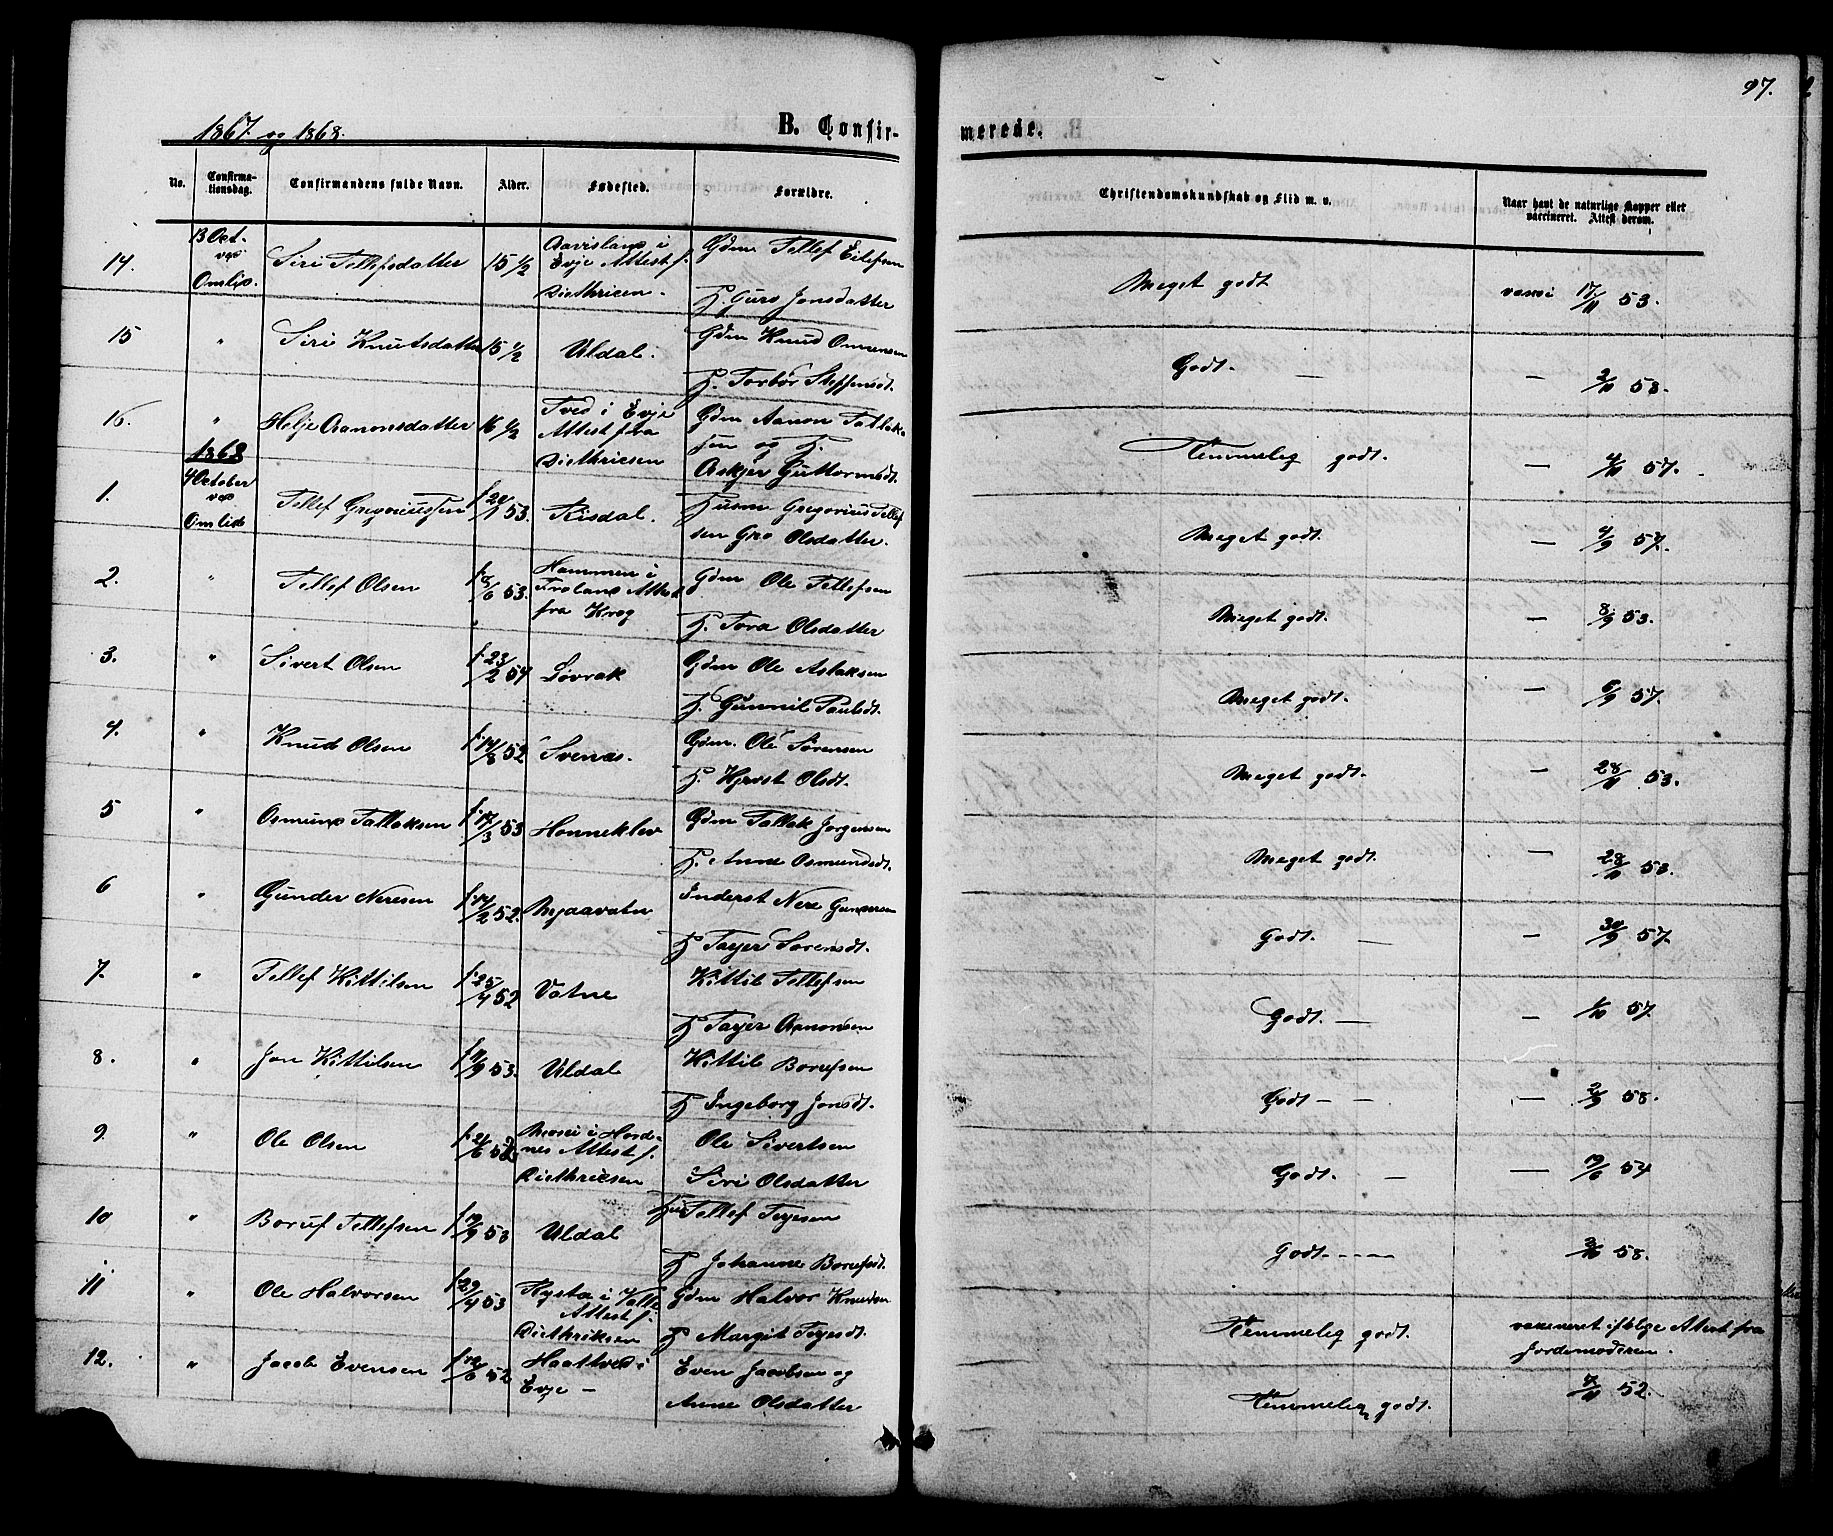 97.
1867. og 1868.
B. Confir-
merede.
No.
Confirma-
tionsdag.
Confirmandens fulde Navn.
Alder.
Fødested.
Forældre.
Christendomskundskab og Flid m. v.
Naar havt de naturlige Kopper eller
vaccineret. Attest derom.
14.
13 Oct.
ved
Omlid.
Siri Tellefsdatter
15 1/2
Aavisland i
Evje Attest f.
Diethricen.
Gdm Tellef Eilefsen
H. Guro Jonsdatter
Meget godt
17/11 53.
15
"
Siri Knutsdatter
15 1/2
Uldal.
Gdm Knud Omunsen
H. Torbør Steffensdt.
Godt. —
— 2/11 53.
16.
"
Helje Aanonsdatter
16 1/2
Tved i Evje
Attest fra
Diethricsen
Gdm Aanon Tallak-
sen og H.
Askjer Guttormsdt.
Temmelig godt.
— 4/11 57.
1868
1.
4 October
ved
Omlid
Tellef Gregoriussen
f. 20/1 53.
Risdal.
Husm Gregorius Tellef
sen Gro Olsdatter.
Meget godt.
— 4/9 57.
2.
"
Tellef Olsen
f. 8/6 53.
Hammen i
Froland Attest
fra Krog
Gdm Ole Tellefsen
H. Tora Olsdatter
Meget godt.
— 8/9 53.
3.
"
Sivert Olsen
f. 23/2 54
Løvrak
Gdm Ole Aslaksen
H. Gunnil Paulsdt.
Meget godt.
— 6/9 57.
4.
"
Knud Olsen
f. 14/8 52
Svenas.
Gdm. Ole Sørensen
H. Kjerst Olsdt.
Meget godt.
— 28/11 53.
5
"
Osmund Tallaksen
f. 17/3 53
Honneklev
Gdm Tallak Jørgensen
H. Anne Osmundsdt.
Meget godt.
— 28/11 53.
6
"
Gunder Neresen
f. 14/2 52.
Mjaavatn
Inderst Nere Gundersen
H Tarjer Sørensdt.
Godt. —
— 30/9 57.
7.
"
Tellef Kittilsen
f. 25/4 52
Vatne
Kittil Tellefsen
H Tarjer Aanonsen
Godt. —
1/10 57.
8.
"
Jon Kittilsen
f. 11/9 53.
Uldal
Kittil Borufsen
H Ingeborg Jonsdt.
Godt — —
— 2/9 58.
9.
"
Ole Olsen
Mosei i Hord-
nes Attest f.
Diethricsen
Ole Sivertsen
Siri Olsdatter
Godt. —
— 19/6 54
10
"
Boruf Tellefsen
f. 19/9 53
Uldal
Hus Tellef Terjesen
H Johanne Borufsdt.
Godt. - - - -
3/10 58.
11
"
Ole Halvorsen
f. 29/4 53
Rysta i Valle
Attest f.
Diethriksen
Gdm Halvor Knudsen
H Margit Terjesdt.
Temmelig godt.
vaxeneret ifølge Attest fra
Jordemoderen.
12.
"
Jacob Evensen
Haattved i
Evje —
Even Jacobsen og
Anne Olsdatter
Temmelig godt.
7/11 52.